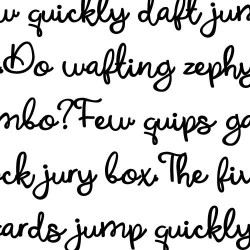 w quickly daft jum
.Do wafting zephy
mbo?Few quips ga
ck jury box.The fiv
cards jump quickly